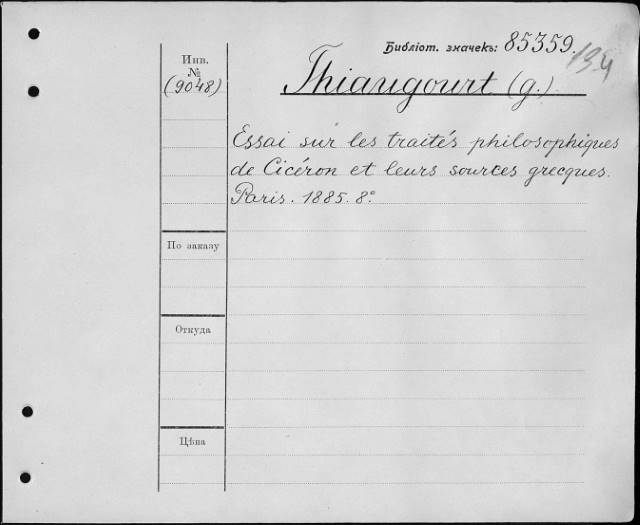 Библіот. значекъ: 85359.
134
Инв.
№
(9048)
Thiaugourt (g.)
Essai sur les traités philosophiques
de Cicéron et leurs sources grecques.
Paris. 1885. 8º
По заказу
Откуда
Цѣна